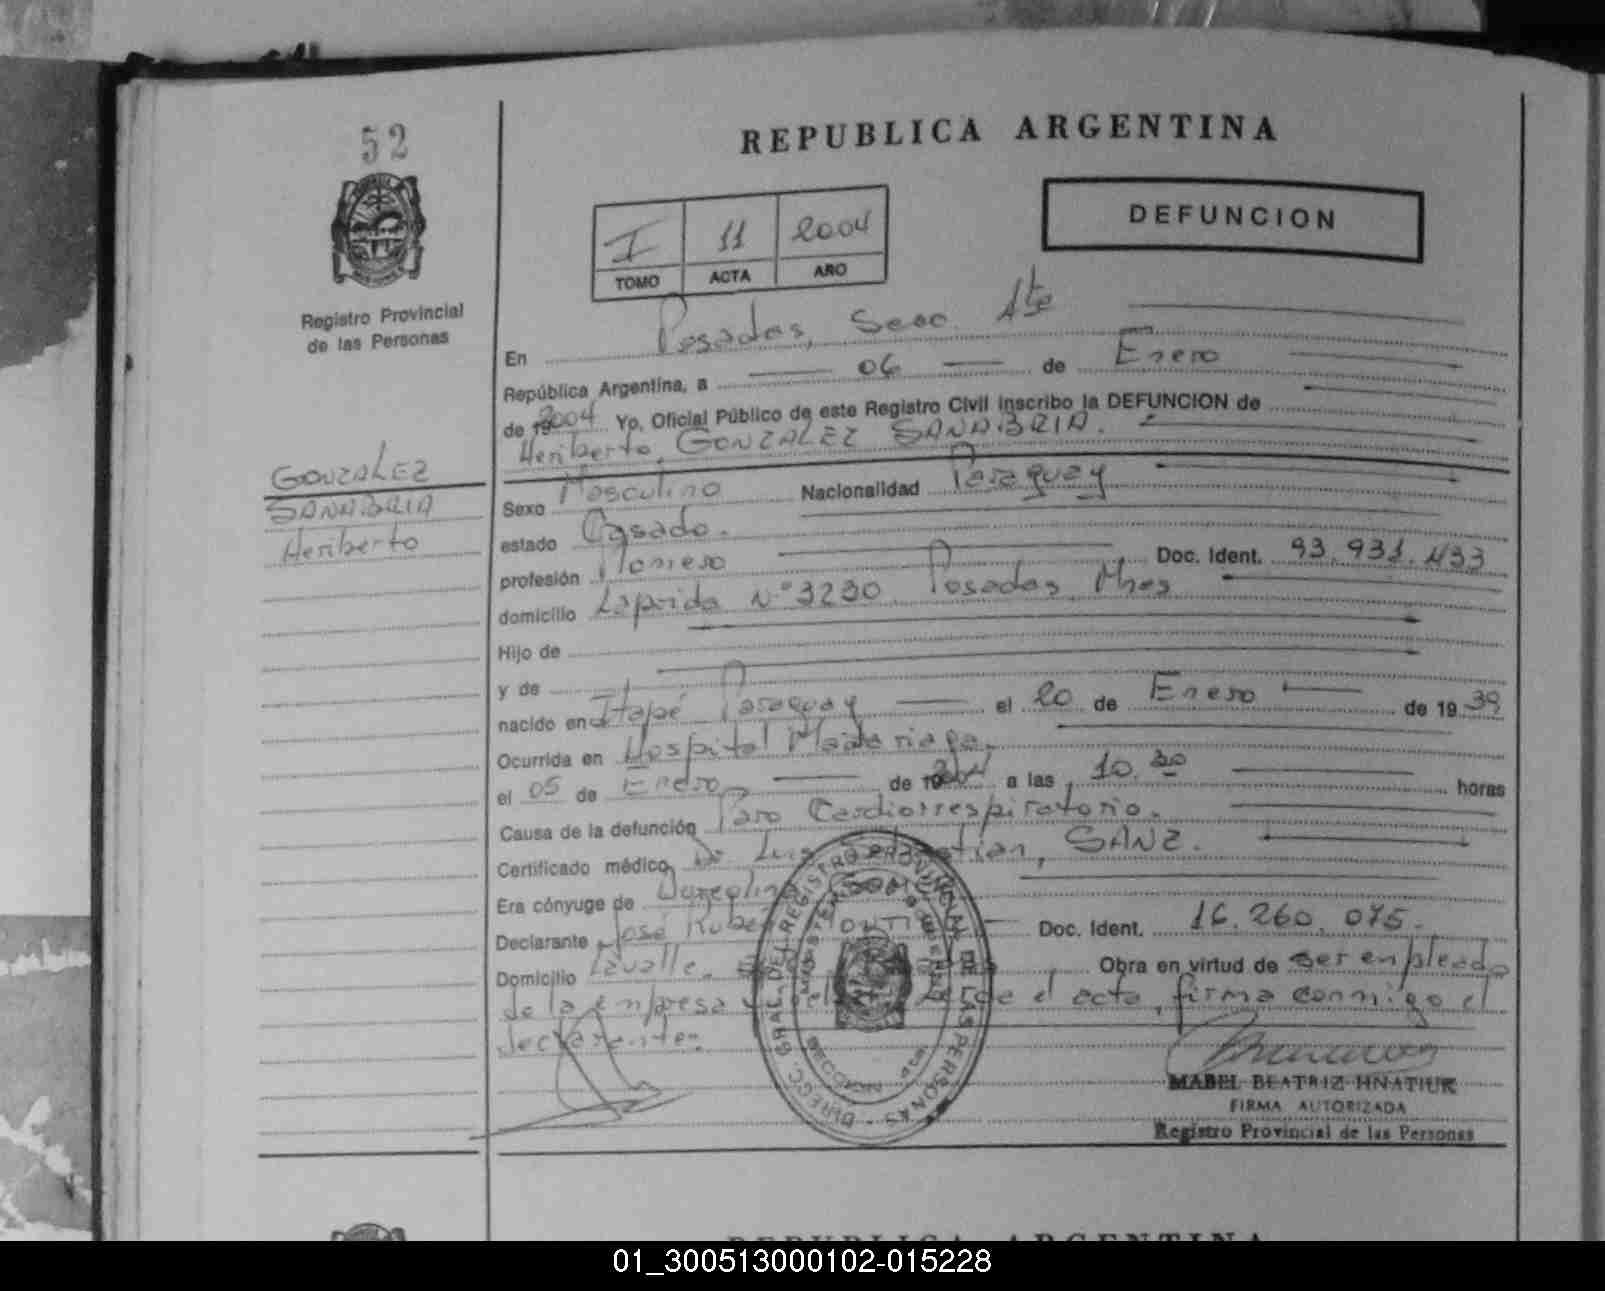 52
REPUBLICA ARGENTINA
DEFUNCION
I 11 2004
TOMO ACTA AÑO
Registro Provincial
de las Personas
En Posadas, Secc. 1te
República Argentina, a 06 de Enero
de 2004 Yo, Oficial Público de este Registro Civil inscribo la DEFUNCION de
Heriberto, GONZALEZ SANABRIA.
GONZALEZ
SANABRIA
Heriberto
Sexo Masculino Nacionalidad Paraguay
estado Casado.
profesión Doc. Ident. 93.931.433
domicilio Laprida N° 3230 Posadas Mnes
Hijo de
y de
nacido en Itapé Paraguay el 20 de Enero de 1939
Ocurrida en Hospital Madariaga.
el 05 de Enero de 2004 a las 10.30 horas
Causa de la defunción Paro Cardiorrespiratorio.
Certificado médico Dr Luis Sebastian, SANZ.
Era cónyuge de
Declarante José Rubén Doc. Ident. 16.260.075.
Domicilio Lavalle. Obra en virtud de ser empleado
de la empresa el acta, firma conmigo el
declarante.
DIRECC. GRAL. DEL REGISTRO PROVINCIAL DE LAS PERSONAS
MABEL BEATRIZ HNATIUK
FIRMA AUTORIZADA
Registro Provincial de las Personas
REPUBLICA ARGENTINA
01_300513000102-015228